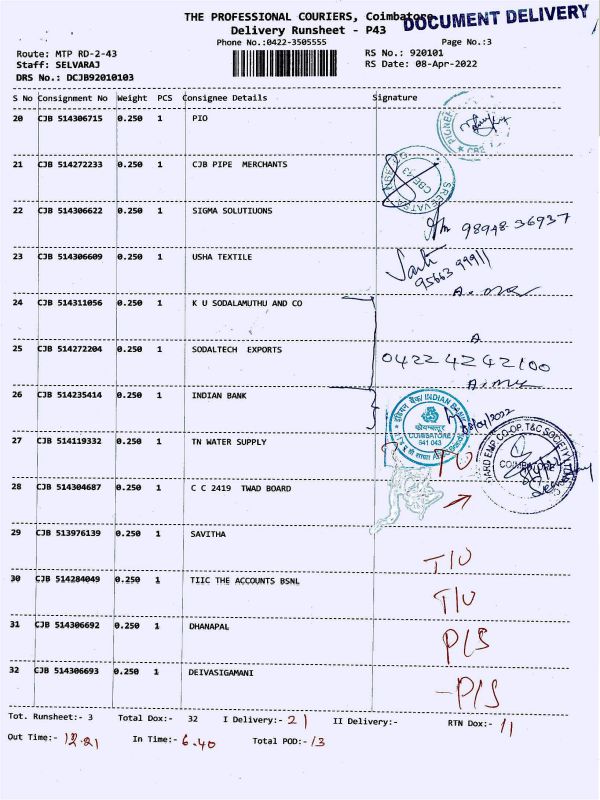 THE PROFESSIONAL COURIERS, Coimbatore
DOCUMENT DELIVERY
Delivery Runsheet - P43
Phone No.:0422-3505555 Page No.:3
Route: MTP RD-2-43 RS No.: 920101
Staff: SELVARAJ RS Date: 08-Apr-2022
DRS No.: DCJB92010103
S No Consignment No Weight PCS Consignee Details Signature
20 CJB 514306715 0.250 1 PIO
21 CJB 514272233 0.250 1 CJB PIPE MERCHANTS
CBE-43
22 CJB 514306622 0.250 1 SIGMA SOLUTIUONS
98948-36937
23 CJB 514306609 0.250 1 USHA TEXTILE
95663 99911
24 CJB 514311056 0.250 1 K U SODALAMUTHU AND CO
25 CJB 514272204 0.250 1 SODALTECH EXPORTS
0422 4242100
26 CJB 514235414 0.250 1 INDIAN BANK
इंडियन बैंक/ INDIAN BANK
कोयम्बत्तूर
COIMBATORE
641 043
27 CJB 514119332 0.250 1 TN WATER SUPPLY
28 CJB 514304687 0.250 1 C C 2419 TWAD BOARD
29 CJB 513976139 0.250 1 SAVITHA
T/U
30 CJB 514284049 0.250 1 TIIC THE ACCOUNTS BSNL
T/U
31 CJB 514306692 0.250 1 DHANAPAL
P/S
32 CJB 514306693 0.250 1 DEIVASIGAMANI
-P/S
Tot. Runsheet:- 3 Total Dox:- 32 I Delivery:- 21 II Delivery:- RTN Dox:- 11
Out Time:- 12.21 In Time:- 6.40 Total POD:- 13